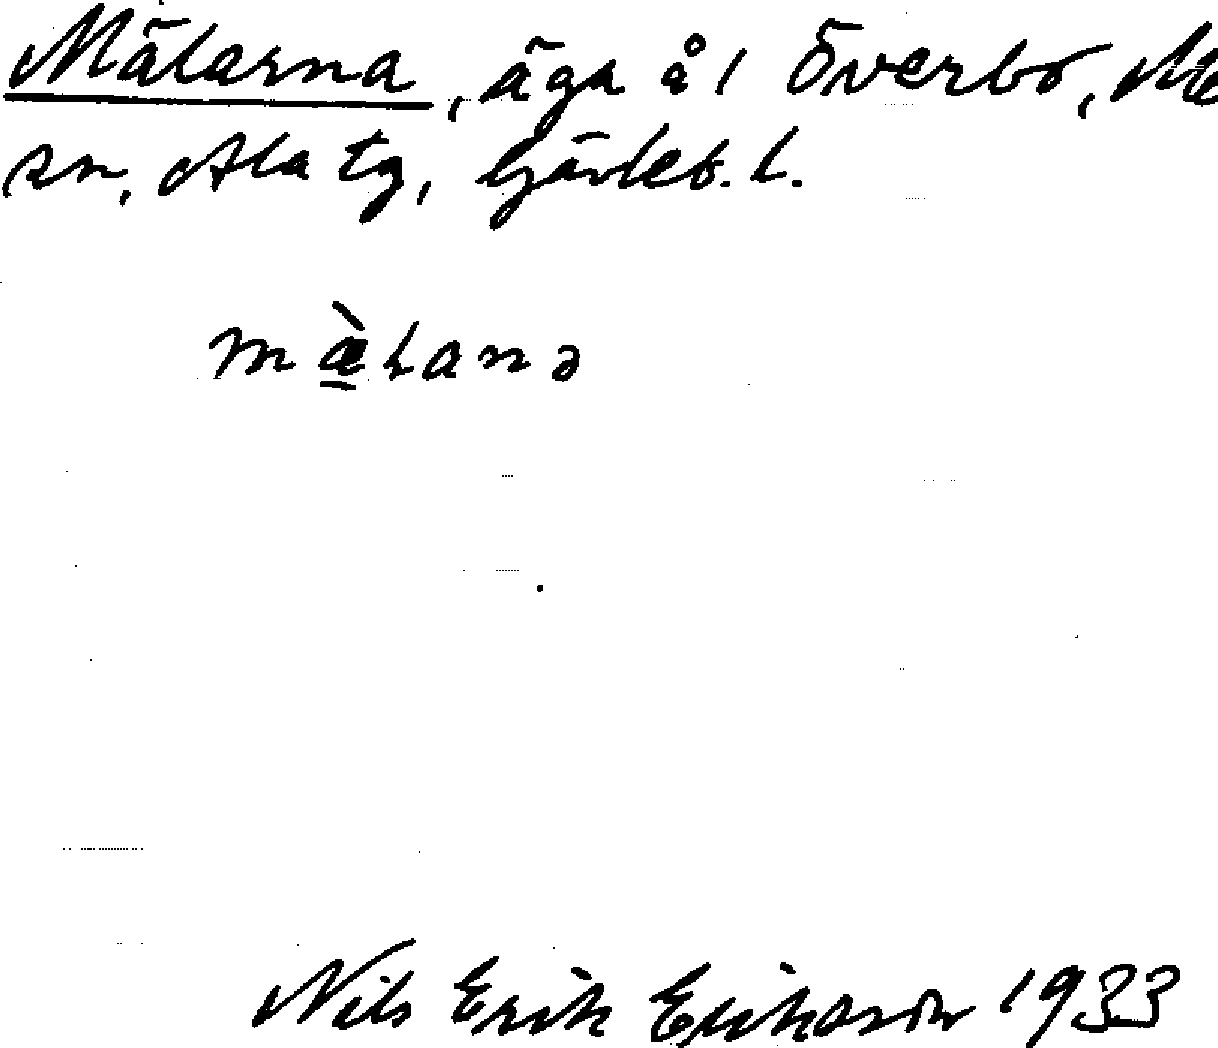 Mälarna, äga å i Överbo, Mo
sn, Ala tg, Gävleb. l.
mæ̀lanə
Nils Erik Erikson 1933